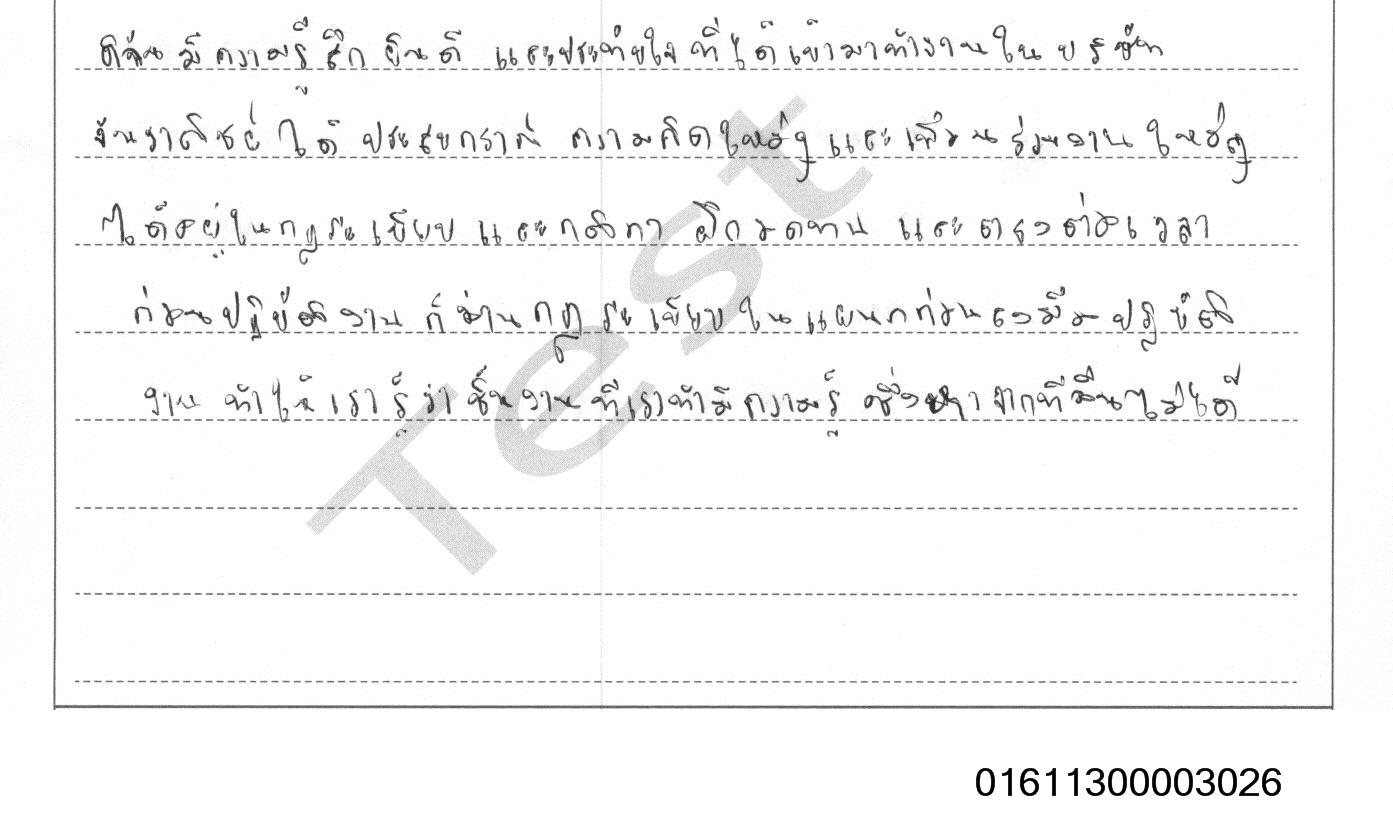 ดิฉันมีความรู้สึกยินดี และประทับใจ ที่ได้เข้ามาทำงานใน บริษัท
ได้ ประสบการณ์ ความคิดใหม่ๆ และเพื่อนร่วมงาน ใหม่ๆ
ได้อยู่ในกฎระเบียบ และกติกา ฝึกอดทน และ ตรงต่อเวลา
ก่อนปฏิบัติงาน ก็อ่านกฎระเบียบในแผนกก่อนลงมือปฏิบัติ
งาน ทำให้เรารู้ว่าชิ้นงานที่เราทำมีความรู้ ซึ่งหาจากที่อื่นไม่ได้
Test
01611300003026